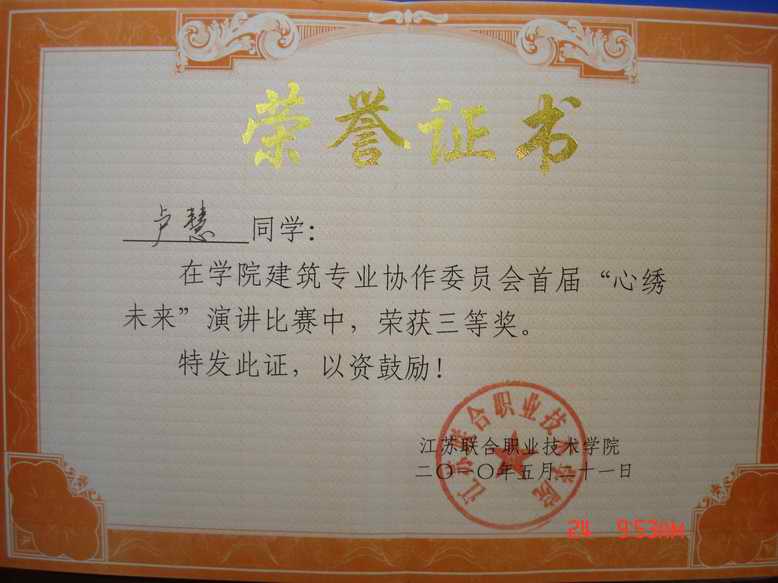 荣誉证书
卢慧 同学：
在学院建筑专业协作委员会首届“心绣
未来”演讲比赛中，荣获三等奖。
特发此证，以资鼓励！
江苏联合职业技术学院
江苏联合职业技术学院
二〇一〇年五月二十一日
24 9:53AM